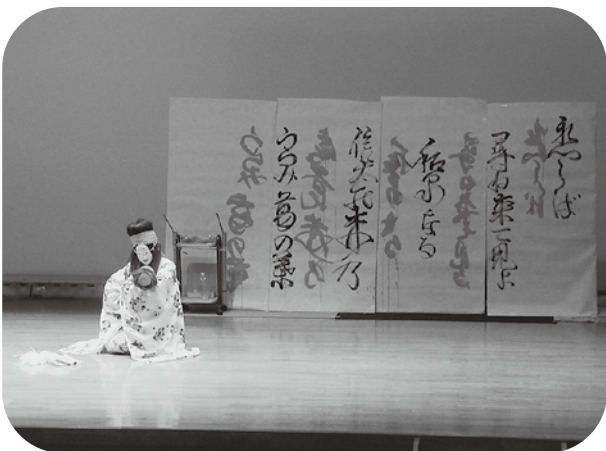 恋しくば
尋ね来て見よ
和泉なる
信太の森乃
うらみ葛の葉